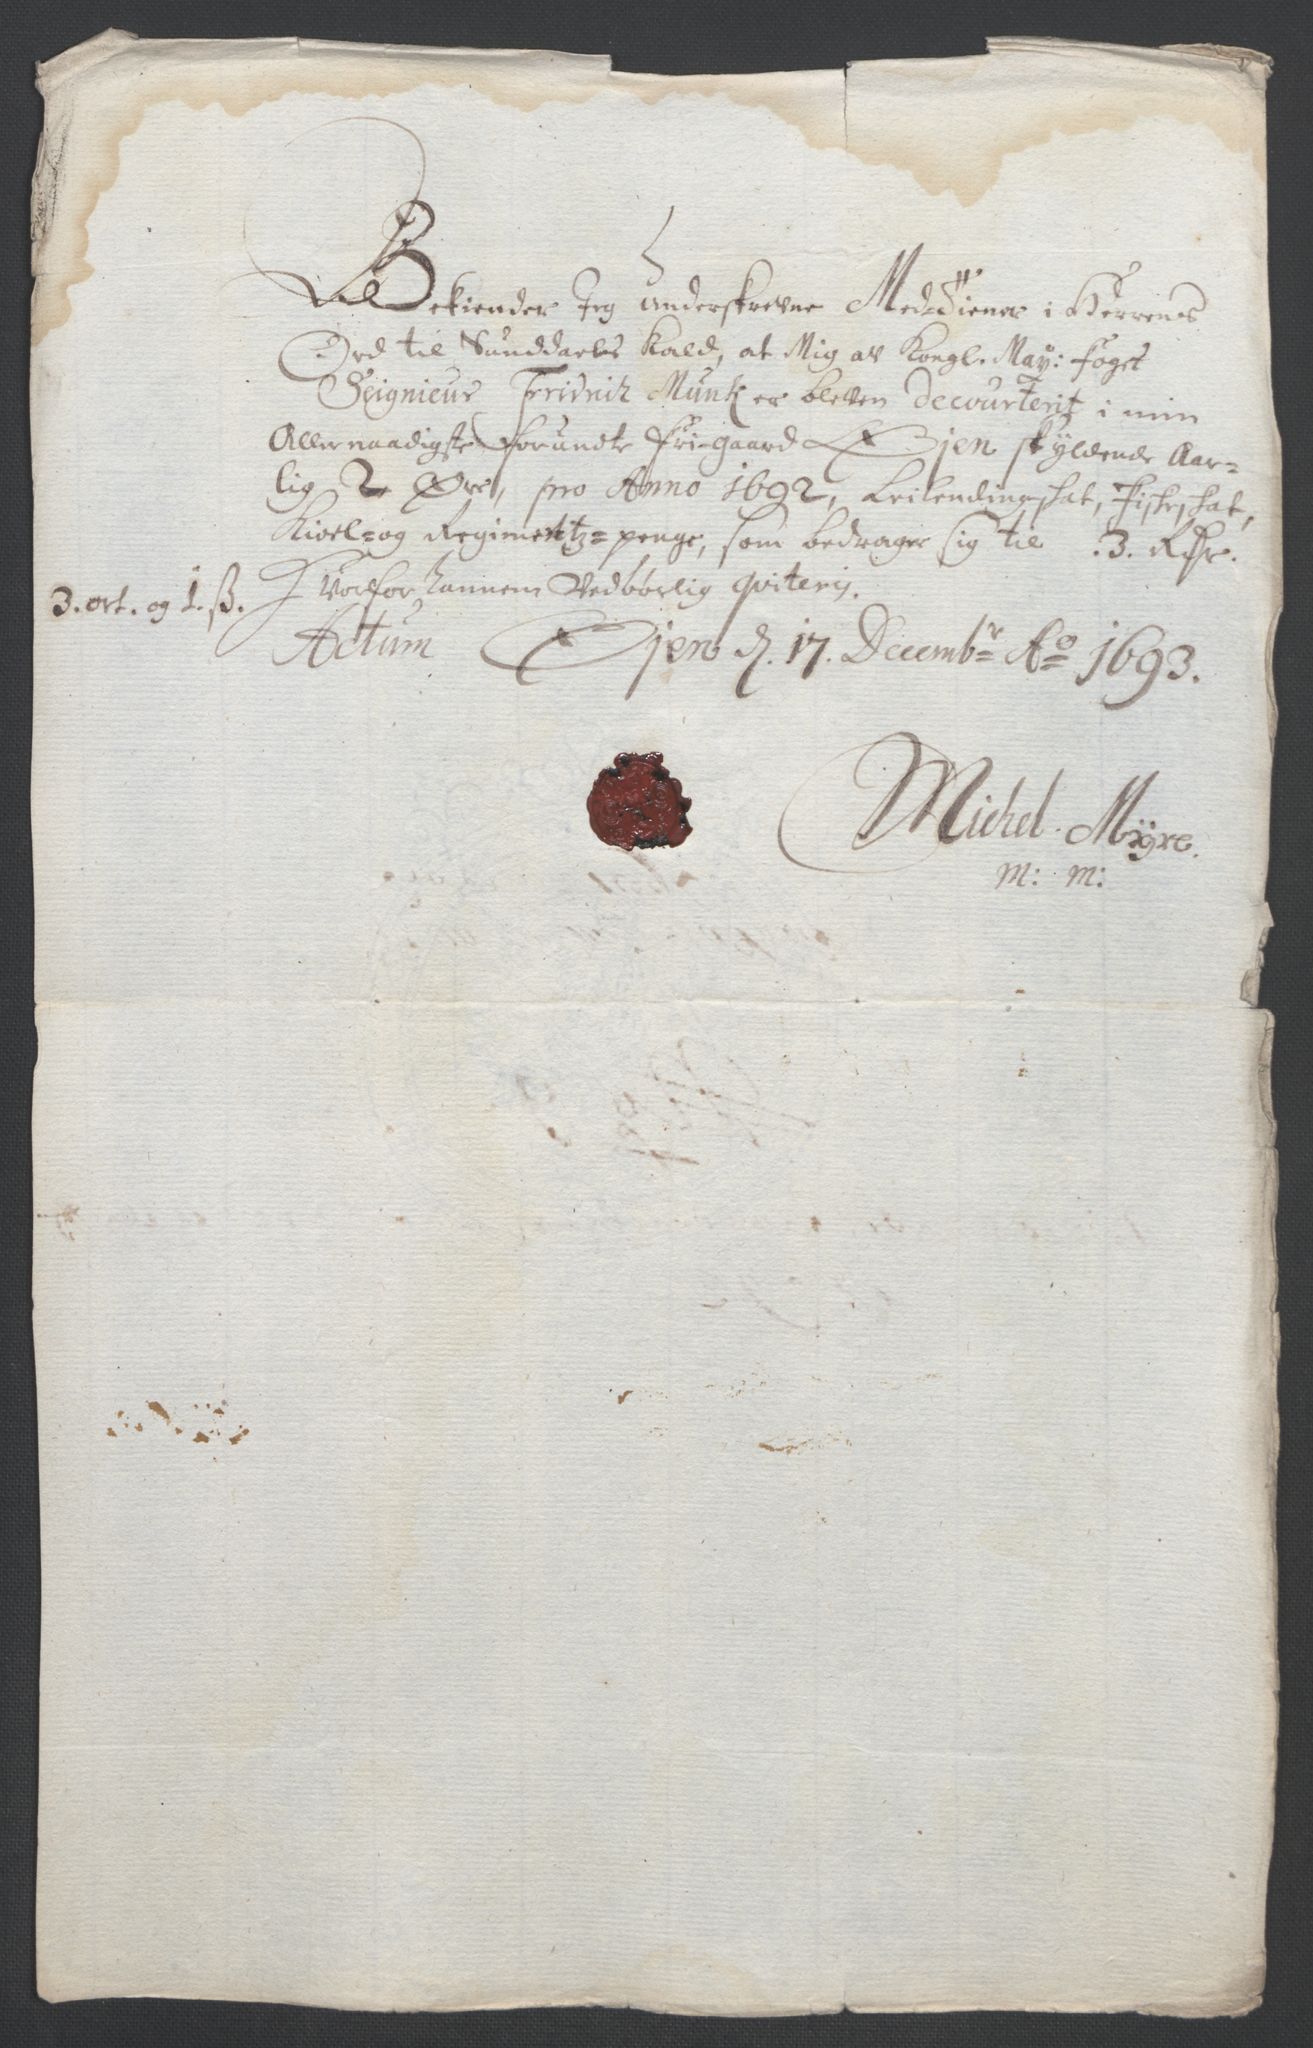 Bekiender Jeg underskrevne Med-Tiener i Herrens
Ord til Sunddaels Kald, at Mig av Kongl. May: foget
Seignieur Fridrich Munk er bleven decourterit i min
Allernaadigste forundte fri-gaard Øjen skÿldende Aar=
lig 2 Ører, pro Anno 1692, Leilendingskat, Fischeskat,
Kioel= og Regimentz=penge, som bedrager sig til .3. Rdr.
3. ort. og 1. ß. Hvorfor hannem Vedbørlig qviteris.
Actum Øjen d. 17. Decembr Ao 1693.
Michel Mÿre.
m: m: